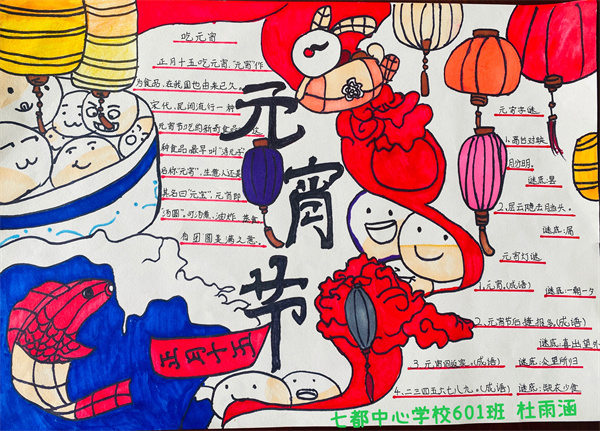 吃元宵
正月十五吃元宵,"元宵"作
为食品,在我国也由来已久。
宋代,民间流行一种
元宵节吃的新奇食品。
种食品最早叫"浮元子"
后称"元宵",生意人还美
其名曰"元宝"。元宵即
"汤圆",可汤煮、油炸、蒸食
有团圆美满之意。
元宵节
正月十五
元宵字谜
1、高台对映
月分明。
谜底:
2、层云隐去月当头。
谜底:
元宵灯谜
1、元宵.(成语) 谜底:一朝一夕
2、元宵节后捷报多.(成语)
谜底:喜出望外
3、元宵同返家。(成语) 谜底:众望所归
4、二三四五六七八九。(成语) 谜底:缺衣少食
七都中心学校601班 杜雨涵